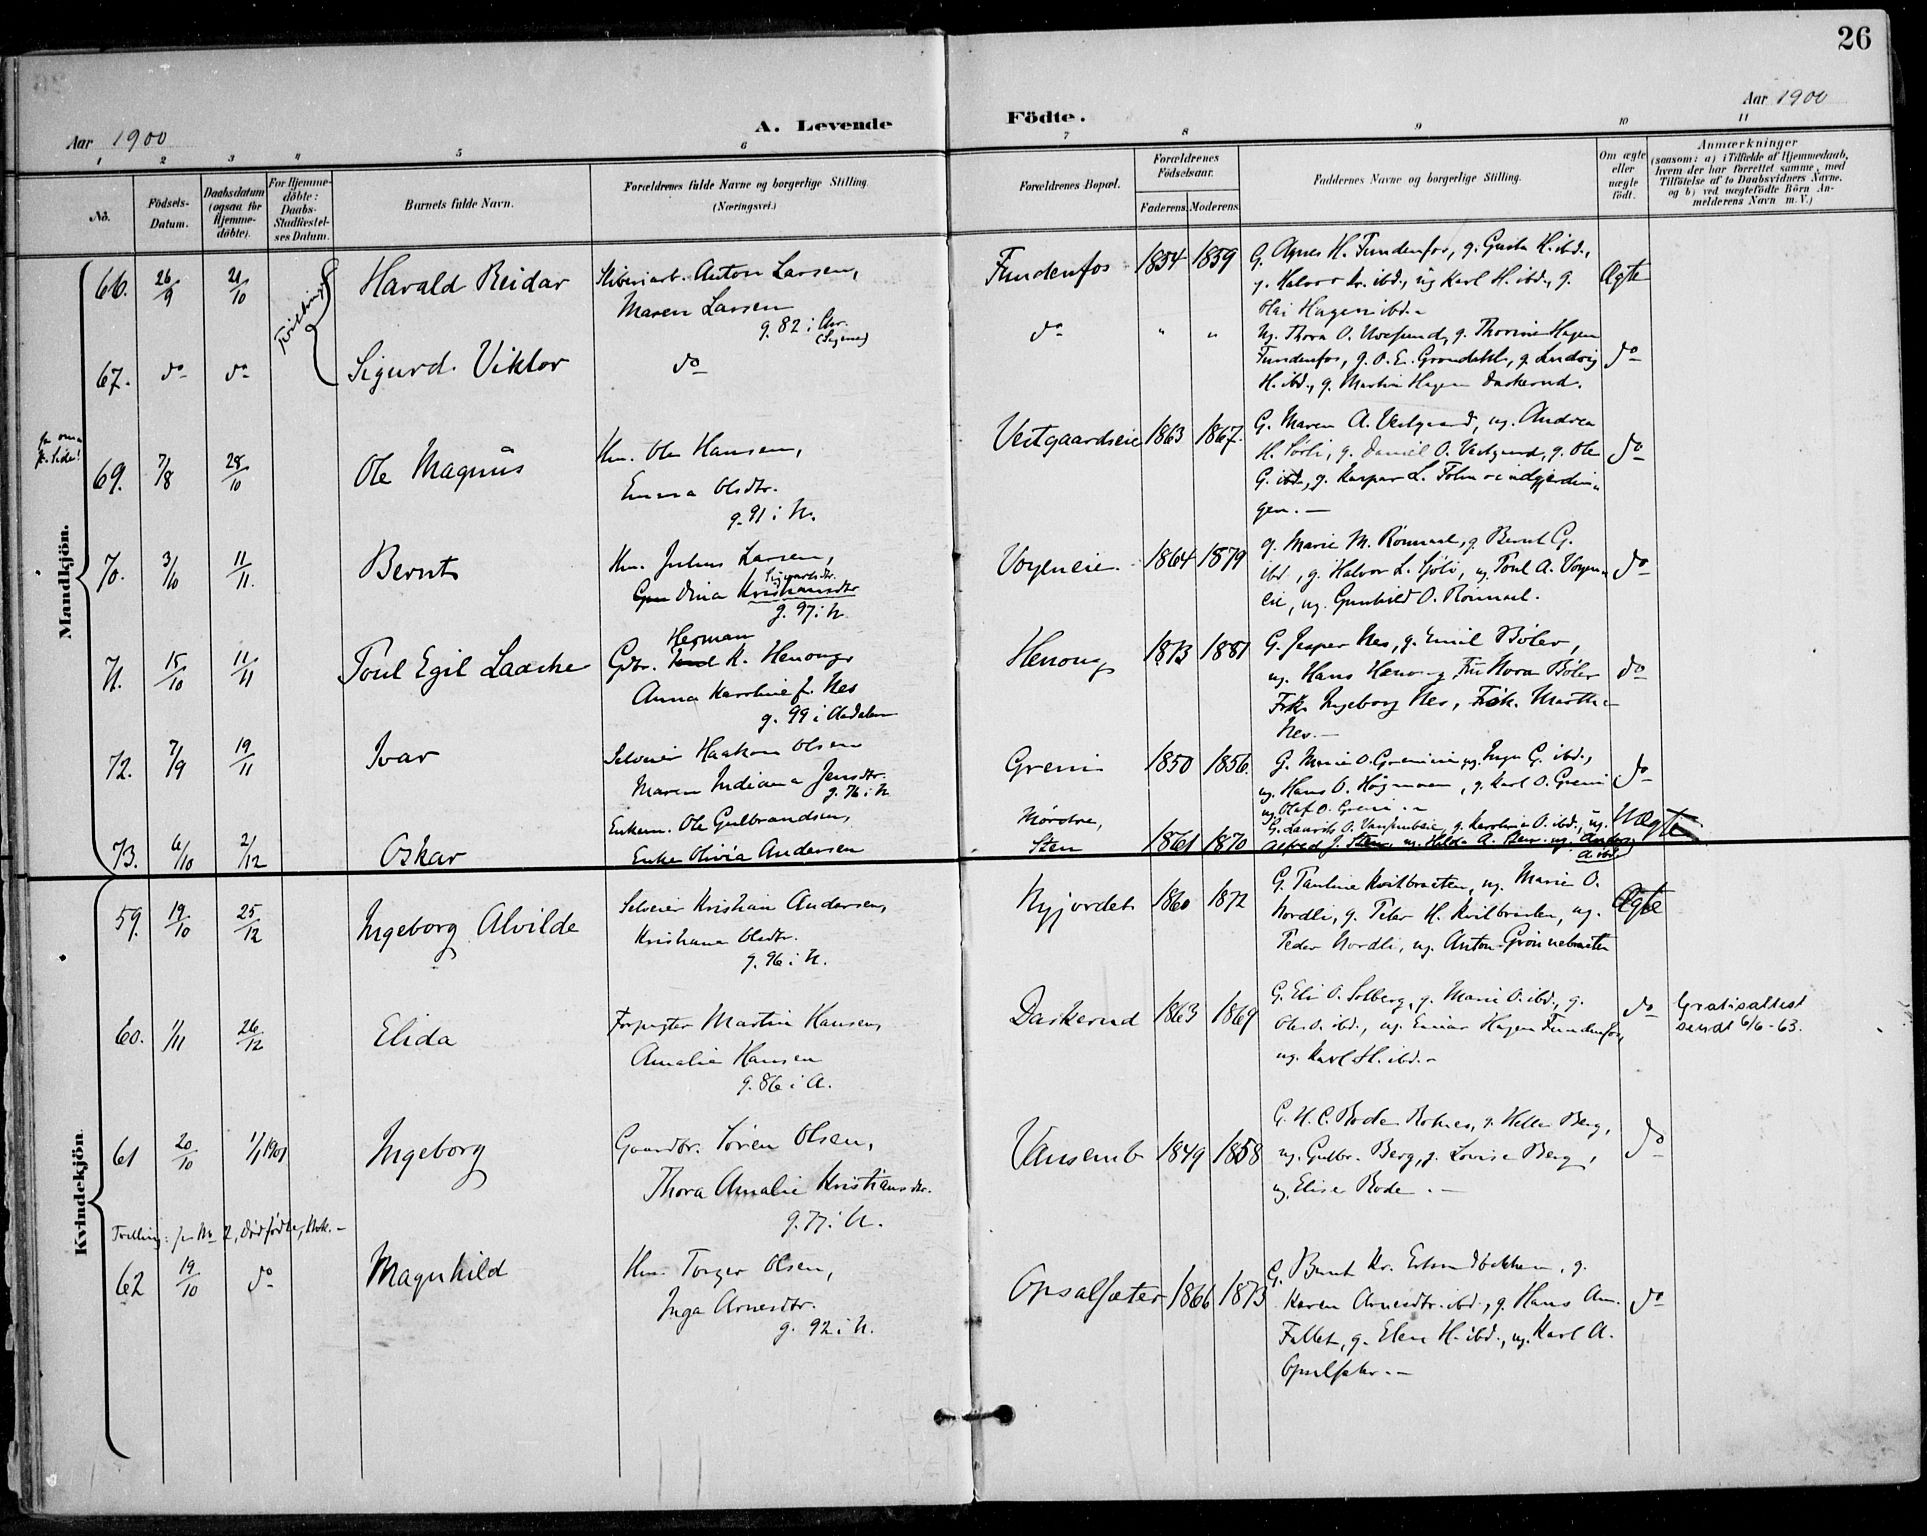 26
Aar 1900
A. Levende Födte.
Aar 1900
1 2 3 4 5 6 7 8 9 10 11
No.
Födsels-Datum.
Daabsdatum (ogsaa for Hjemme-döbte).
For Hjemme-döbte: Daabs-Stadfæstel-ses Datum.
Barnets fulde Navn.
Forældrenes fulde Navne og borgerlige Stilling.
(Næringsvei.)
Forældrenes Bopæl.
Forældrenes Födselsaar.
Faderens. Moderens.
Faddernes Navne og borgerlige Stilling.
Om ægte eller uægte födt.
Anmærkninger
(saasom: a) i Tilfælde af Hjemmedaab, hvem der har forrettet samme, med Tilföielse af to Daabsvidners Navne. og b) ved uægtefödte Börn Anmelderens Navn m. V.)
Mandkjön.
66. 26/9 21/10 Tvillinger Harald Reidar
Anton Larsen,
Maren Larsen
g. 82 i Chr.
Fundenfos 1854 1859
G. Agnes H. Fundenfos, g. Gusta H. ibd.,
g. Halvor Kr. ibd., ug Karl H. ibd., g.
Hagen ibd.
Ægte
67. do do Sigurd Viktor
do
do " "
Ug. Thora O. g. Thorine Hagen
Fundenfos, g. O. E. Grøndahl, g. Ludvig
H. ibd., g. Martin Hagen Daskerud.
do
69. 7/8 28/10 Ole Magnus
Hm. Ole Hansen,
Emma Olsdtr.
g. 91 i N.
Vestgaardseie 1863 1867.
G. Maren A. Vestgaard, ug. Andrea
H. Sörli, g. Daniel O. Vestgaard, g. Ole
G. ibd., g. Kaspar L.
gen. –
do
70. 3/10 11/11. Bernt
Hm. Julius Larsen,
Sigvartsdtr.
Dina Kristiansdtr
g. 97 i N.
Vøyeneie 1864 1879
g. Marie M. g. Bernt G.
ibd, g. Halvor L. Sjöli, ug. Poul A.
eie, ug. Gunhild O.
do
71. 15/10 11/11 Poul Egil Laache
Herman
Gdbr. K. Henong
Anna Karoline f. Nes
g. 99 i Aadalen
Henong 1873 1881
G. Jesper Nes, g. Emil Bøler,
ug. Hans Fru Nora Bøler
Frk. Ingeborg Nes, Frk. Marthe
Nes. –
do
72. 7/9 19/11 Ivar
Selveier Haakon Olsen
Maren Indiana Jensdtr.
g. 76 i N
Greni 1850 1856.
G. Marie O. ug. Inga G. ibd.,
ug. Hans O. g. Karl O. Greni
ug. Olaf O. Greni. –
do
73. 6/10 2/12 Oskar
Enkem. Ole Gulbrandsen,
Enke Olivia Andersen
Mørstre,
Sten 1861 1870
G. Laurits O. g. Karoline O. ibd., ug.
Alfred J. Sten, ug. Hilda A. Sten, ug.
A. ibd.
Uægte
Kvindekjön.
59. 19/10 25/12 Ingeborg Alvilde
Selveier Kristian Andersen,
Kristiane Olsdtr.
g. 96 i N.
Nyjordet 1860 1872
G. Pauline Kvilbraaten, ug. Marie O.
Nordli, g. Peter H. ug.
Peder Nordli, ug. Anton Grønnebraaten
Ægte
60. 1/11 26/12 Elida
Forpagter Martin Hansen,
Amalie Hansen
g. 86 i A.
Daskerud 1863 1869
G. Eli O. Solberg, g. Marie O. ibd., g.
Ole O. ibd., ug. Einar Hagen Fundenfos,
ug. Karl H. ibd. –
do
Gratisattest
sendt 6/6-63.
61 20/10 1/1 1901 Ingeborg
Gaardbr. Søren Olsen,
Thora Amalie Kristiansdtr.
g. 77 i N.
Vansemb 1849 1858
G. H. C. Bode Berg,
ug. Gulbr. Berg, g. Lovise Berg,
ug. Elise Bode. –
do
Tvilling: jfr No 2, Dødfødte, Mdk. –
62 19/10 do Magnhild
Hm. Torger Olsen,
Inga Arnesdtr.
g. 92 i N.
Opsalsæter 1866 1873
G. Bernt Kr. g.
Karen Arnesdtr. ibd., g. Hans
Fallet, g. Elen H. ibd., ug. Karl A.
Opsalsæter. –
do